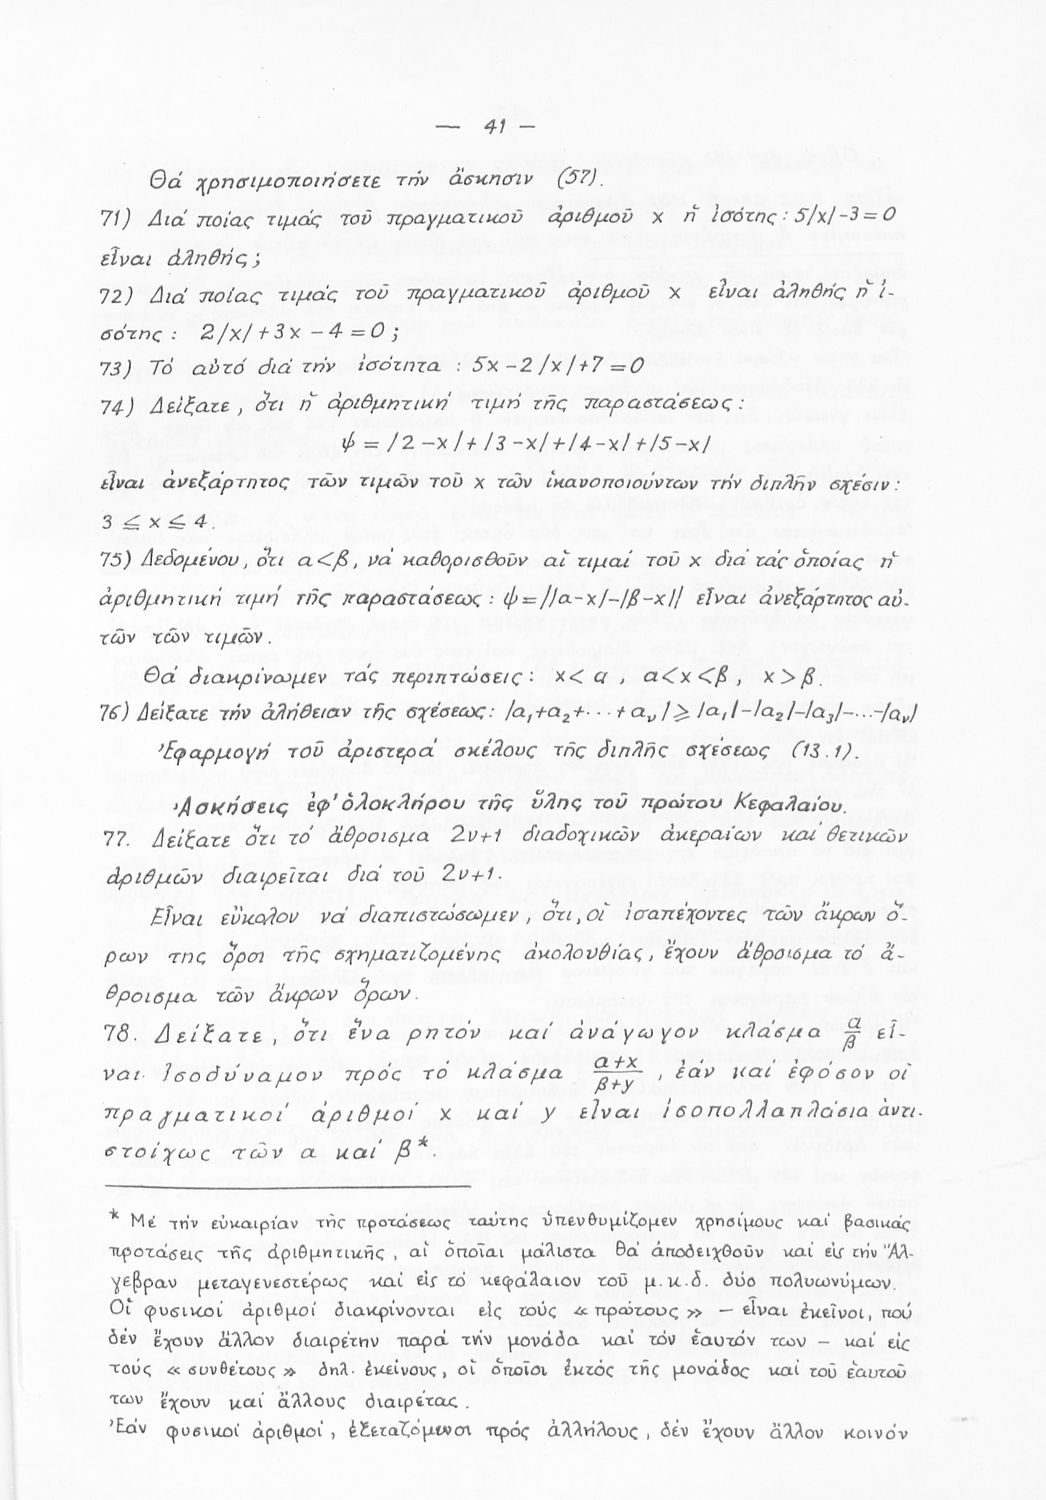 — 41 —
Θά χρησιμοποιήσετε τήν ἄσκησιν (57).
71) Διά ποίας τιμάς τοῦ πραγματικοῦ ἀριθμοῦ x ἡ ἰσότης: 5/x/-3=0
εἶναι ἀληθής;
72) Διά ποίας τιμάς τοῦ πραγματικοῦ ἀριθμοῦ x εἶναι ἀληθής ἡ ἰ-
σότης: 2/x/+3x-4=0;
73) Τό αὐτό διά τήν ἰσότητα: 5x-2/x/+7=0
74) Δείξατε, ὅτι ἡ ἀριθμητική τιμή τῆς παραστάσεως:
ψ = /2-x/+/3-x/+/4-x/+/5-x/
εἶναι ἀνεξάρτητος τῶν τιμῶν τοῦ x τῶν ἱκανοποιούντων τήν διπλῆν σχέσιν:
3 ≤ x ≤ 4.
75) Δεδομένου, ὅτι α<β, νά καθορισθοῦν αἱ τιμαί τοῦ x διά τάς ὁποίας ἡ
ἀριθμητική τιμή τῆς παραστάσεως: ψ=//α-x/-/β-x// εἶναι ἀνεξάρτητος αὐ-
τῶν τῶν τιμῶν.
Θά διακρίνωμεν τάς περιπτώσεις: x<α, α<x<β, x>β.
76) Δείξατε τήν ἀλήθειαν τῆς σχέσεως: /α₁+α₂+...+αᵥ/≥/α₁/-/α₂/-/α₃/-...-/αᵥ/
Ἐφαρμογή τοῦ ἀριστερά σκέλους τῆς διπλῆς σχέσεως (13.1).
Ἀσκήσεις ἐφ' ὁλοκλήρου τῆς ὕλης τοῦ πρώτου Κεφαλαίου.
77. Δείξατε ὅτι τό ἄθροισμα 2ν+1 διαδοχικῶν ἀκεραίων καί θετικῶν
ἀριθμῶν διαιρεῖται διά τοῦ 2ν+1.
Εἶναι εὔκολον νά διαπιστώσωμεν, ὅτι, οἱ ἰσαπέχοντες τῶν ἄκρων ὅ-
ρων της ὅροι τῆς σχηματιζομένης ἀκολουθίας, ἔχουν ἄθροισμα τό ἄ-
θροισμα τῶν ἄκρων ὅρων.
78. Δείξατε, ὅτι ἕνα ρητόν καί ἀνάγωγον κλάσμα α/β εἶ-
ναι ἰσοδύναμον πρός τό κλάσμα (α+x)/(β+y), ἐάν καί ἐφόσον οἱ
πραγματικοί ἀριθμοί x καί y εἶναι ἰσοπολλαπλάσια ἀντι-
στοίχως τῶν α καί β*.
* Μέ τήν εὐκαιρίαν τῆς προτάσεως ταύτης ὑπενθυμίζομεν χρησίμους καί βασικάς
προτάσεις τῆς ἀριθμητικῆς, αἱ ὁποῖαι μάλιστα θά ἀποδειχθοῦν καί εἰς τήν Ἄλ-
γεβραν μεταγενεστέρως καί εἰς τό κεφάλαιον τοῦ μ.κ.δ. δύο πολυωνύμων.
Οἱ φυσικοί ἀριθμοί διακρίνονται εἰς τούς «πρώτους» - εἶναι ἐκεῖνοι, πού
δέν ἔχουν ἄλλον διαιρέτην παρά τήν μονάδα καί τόν ἑαυτόν των - καί εἰς
τούς «συνθέτους» δηλ. ἐκείνους, οἱ ὁποῖοι ἐκτός τῆς μονάδος καί τοῦ ἑαυτοῦ
των ἔχουν καί ἄλλους διαιρέτας.
Ἐάν φυσικοί ἀριθμοί, ἐξεταζόμενοι πρός ἀλλήλους, δέν ἔχουν ἄλλον κοινόν